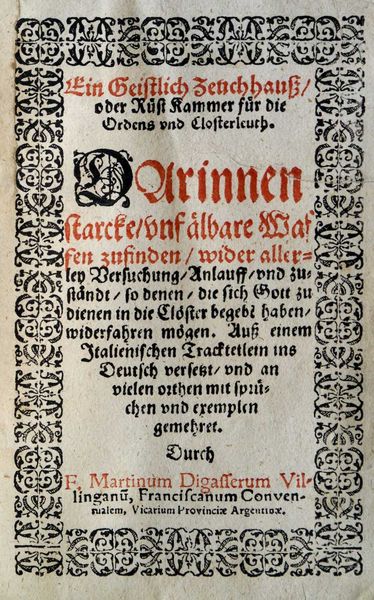 Ein Geistlich Zeuchhauß/
oder Rüst Kammer für die
Ordens vnd Closterleuth.
DArinnen
starcke/vnfälbare Waf
fen zufinden/ wider aller⸗
ley Versuchung/Anlauff/vnd zu⸗
ständt/ so denen/ die sich Gott zu
dienen in die Clöster begebē haben/
widerfahren mögen. Auß einem
Italienischen Tracktetlein ins
Deutsch versetzt/ vnd an
vielen orthen mit sprü⸗
chen vnd exemplen
gemehret.
Durch
F. Martinum Digasserum Vil-
linganū, Franciscanum Conven-
nualem, Vicarium Provinciæ Argentinæ.